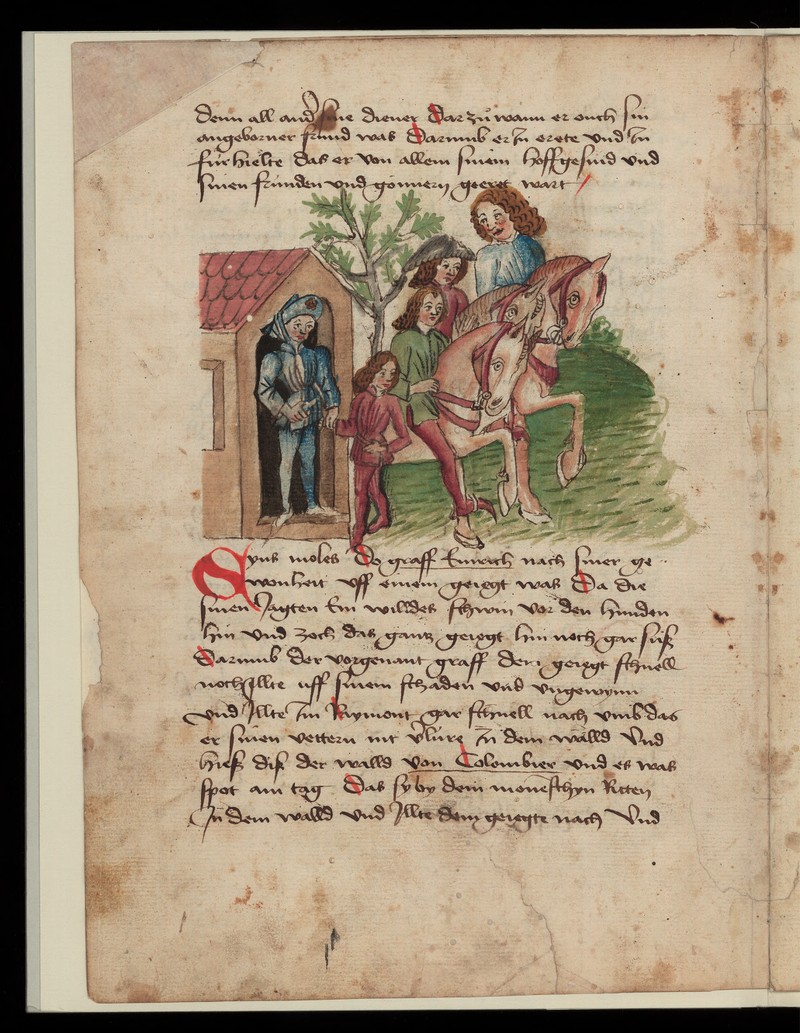 denn all ander sine diener Dar zu wann er ouch sin
angeborner frund was Darumb er In erete vnd In
fur hielte das er von allem sinem hoffgesind vnd
sinen frunden vnd gonnern geeret wart
Eyns moles Do graff Emrich nach siner ge
wonheit vff einem geiegt was Da die
sinen Jagten Ein willdes schwin vor den hunden
hin vnd zoch das gantz geiegt hin noch gar süß
Darumb der vorgenant graff dem geiegt schnell
noch Illte uff sinem schaden vnd vngewynn
vnd Illte Im Reymont gar schnell nach vmb das
er sinen vettern nit vlure In dem walld Vnd
hieß diß der walld von Colombier vnd es was
spot am tag Das sy by dem moneschyn Ritten
In dem walld vnd Illte dem geiegte nach Vnd